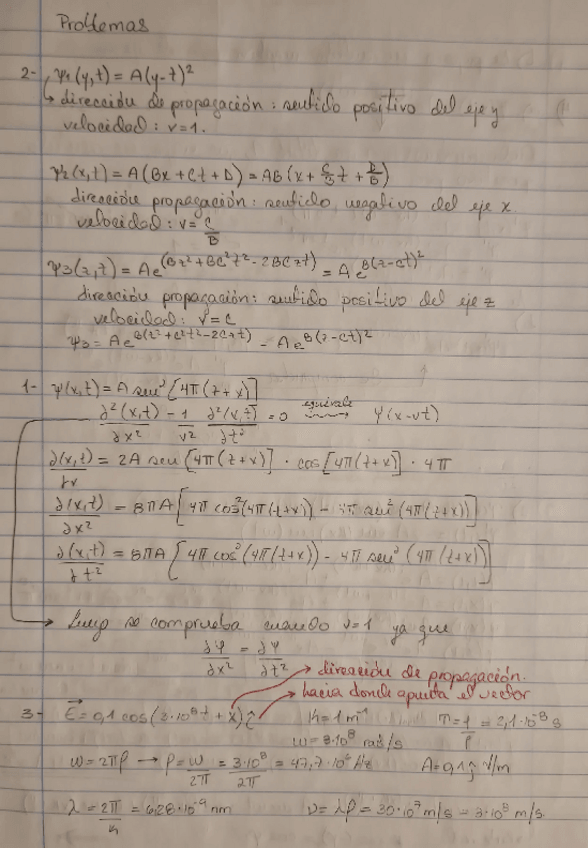 Problemas
2- ψ₁(y,t) = A(y-t)²
↳ dirección de propagación: sentido positivo del eje y
velocidad: v=1.
ψ₂(x,t) = A(Bx + Ct + D) = AB(x + C/B t + D/B)
dirección propagación: sentido negativo del eje x
velocidad: v = C/B
ψ₃(z,t) = Ae^(Bz² + BC²t² - 2BCzt) = Ae^B(z-ct)²
dirección propagación: sentido positivo del eje z
velocidad: v = c
ψ₃ = Ae^B(z² + c²t² - 2c+t) = Ae^B(z-ct)²
1- ψ(x,t) = A sen²[4π(t+x)]
∂²(x,t)/∂x² - 1/v² ∂²(x,t)/∂t² = 0 equivale → ψ(x-vt)
∂(x,t)/∂x = 2A sen[4π(t+x)] · cos[4π(t+x)] · 4π
∂(x,t)/∂x² = 8πA[4π cos²(4π(t+x)) - 4π sen²(4π(t+x))]
∂(x,t)/∂t² = 8πA[4π cos²(4π(t+x)) - 4π sen²(4π(t+x))]
→ Luego se comprueba cuando v=1 ya que
∂ψ/∂x² = ∂ψ/∂t²
→ dirección de propagación.
→ hacia donde apunta el vector
3- E⃗ = 0,1 cos(3·10⁸t + x) ĵ k = 1 m⁻¹ T = 1/f = 2,1·10⁻⁸ s
ω = 3·10⁸ rad/s
ω = 2πf → f = ω/2π = 3·10⁸/2π = 47,7·10⁶ Hz A = 0,1 ĵ V/m
λ = 2π/k = 6,28·10⁻⁹ nm v = λf = 30·10⁷ m/s = 3·10⁸ m/s.